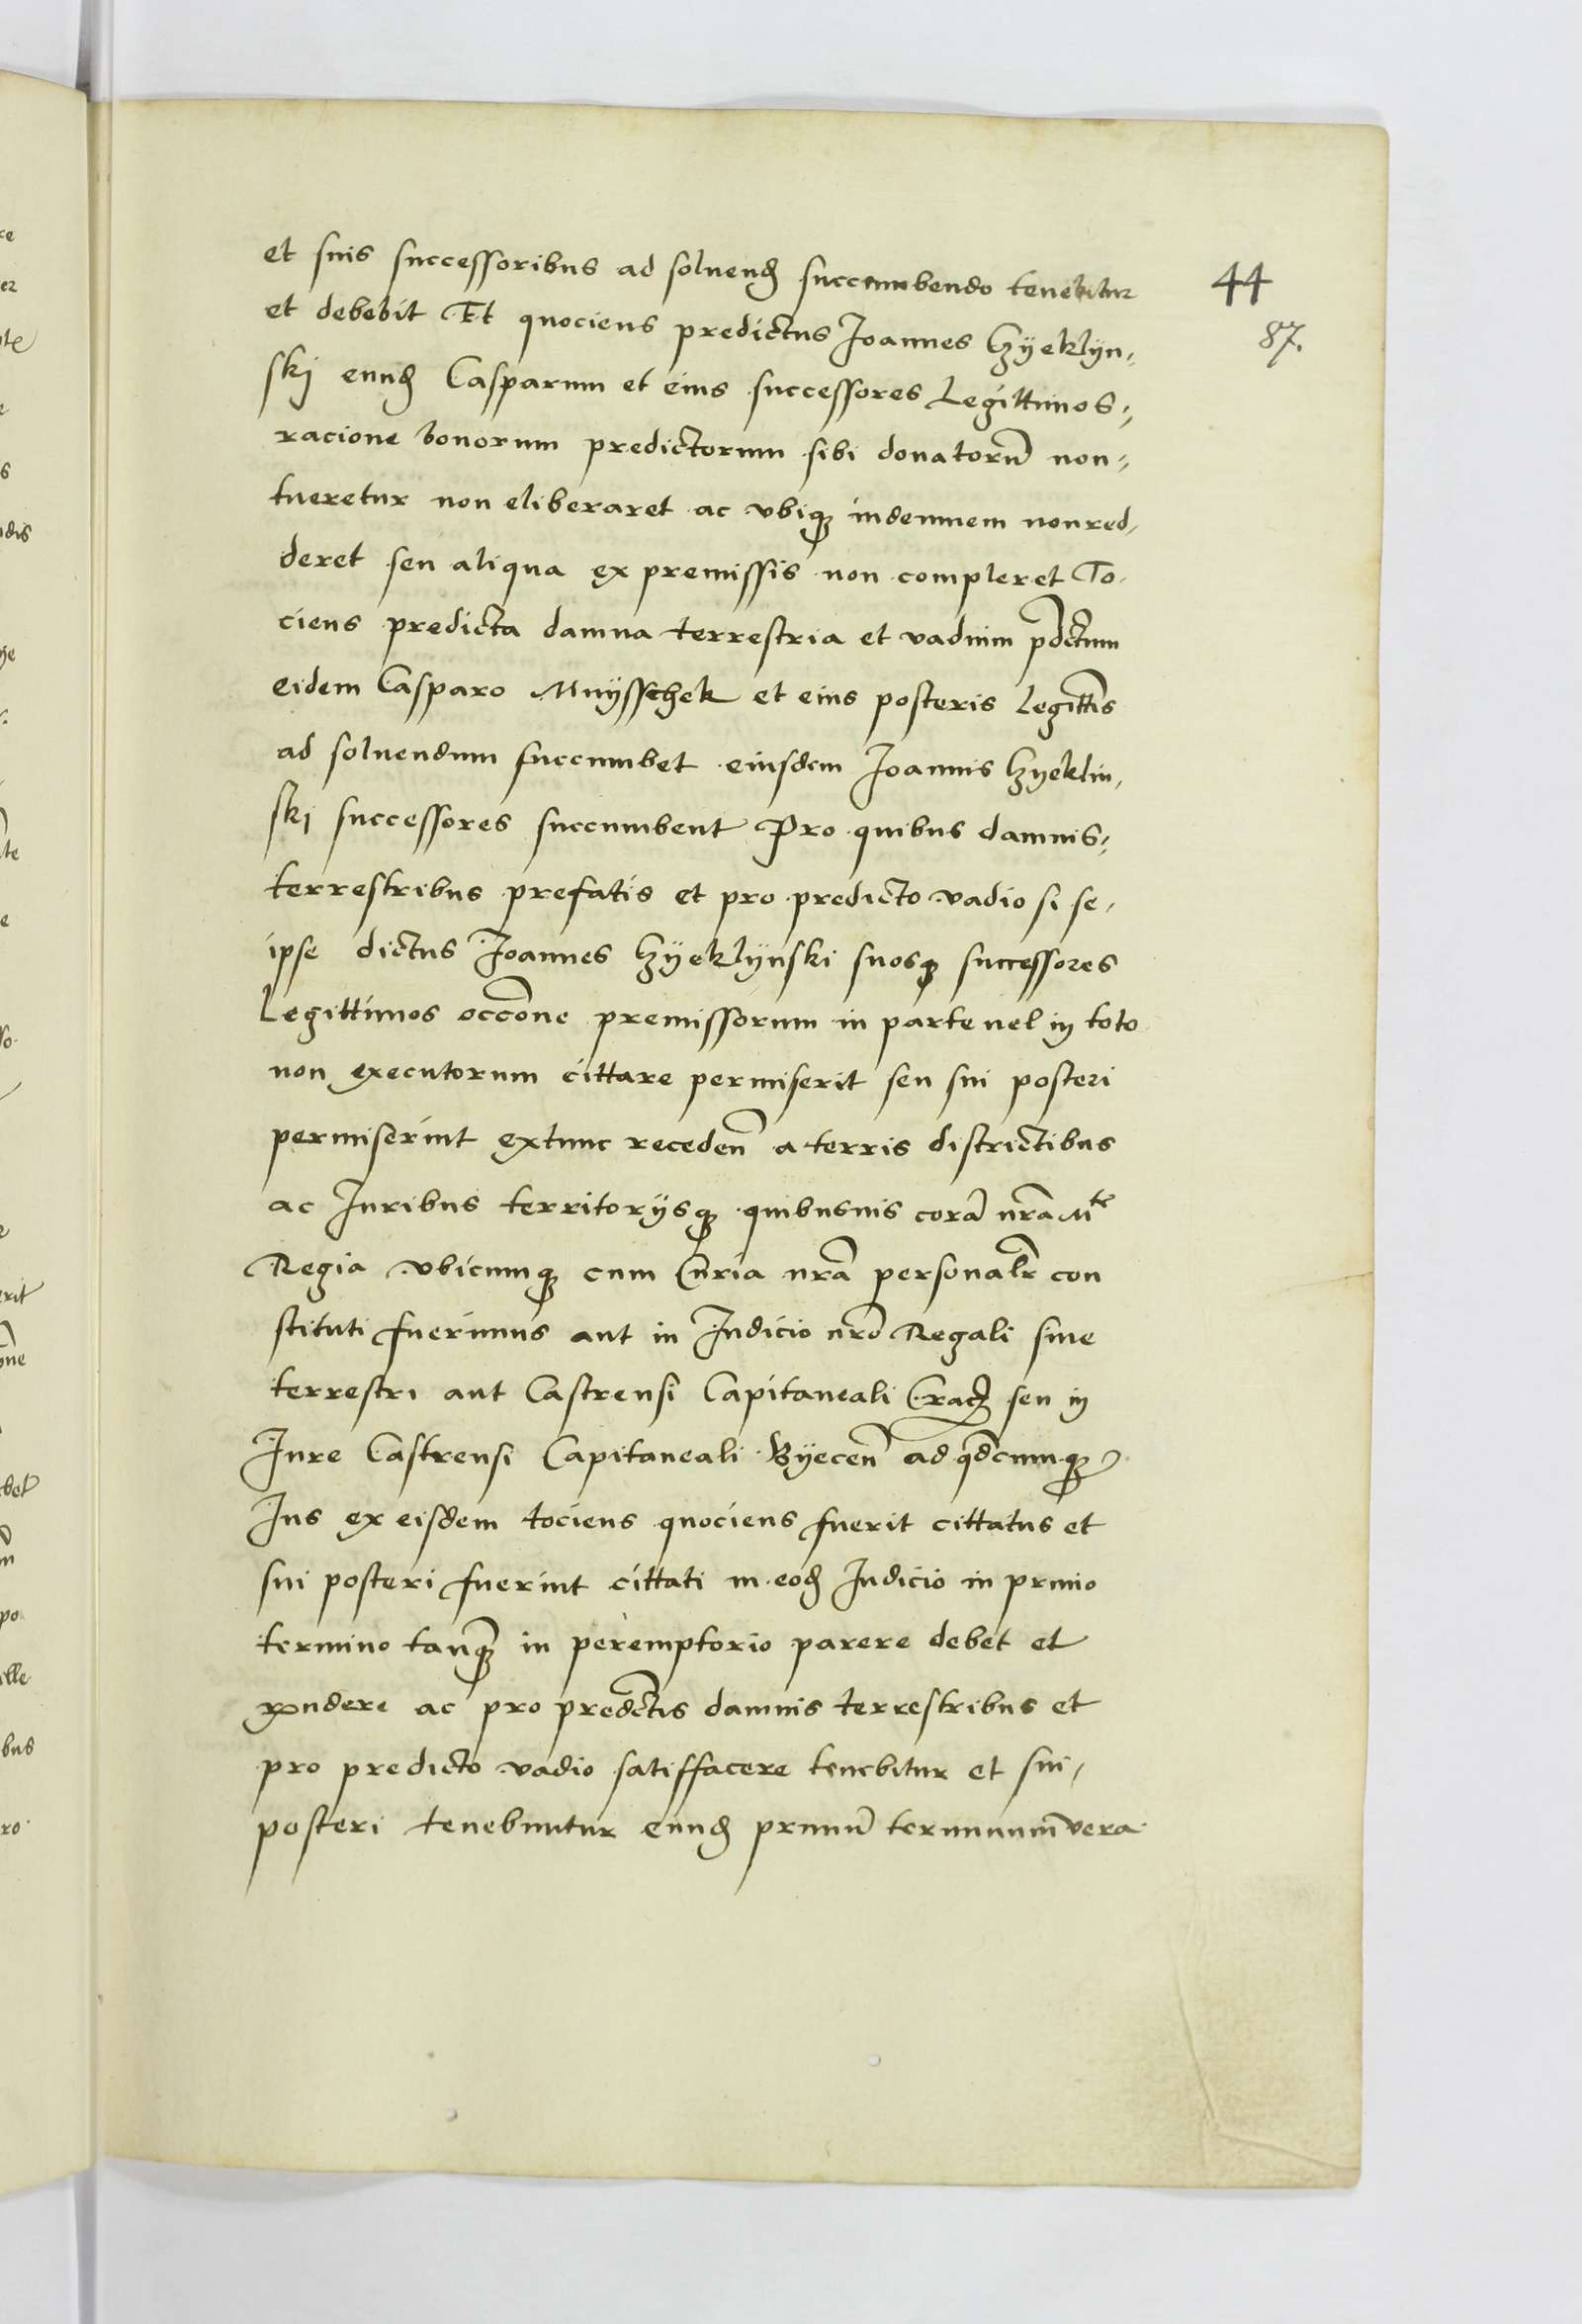 et suis successoribus ad soluend succumbendo tenebitur
44
et debebit Et quociens predictus Joannes Czyeklyn-
87.
skj eund Casparum et eius successores Legittimos-
racione bonorum predictorum sibi donatorũ non-
tueretur non eliberaret ac vbiq indemnem non red-
deret seu aliqua ex premissis non compleret To-
ciens predicta damna terrestria et vadium pdctum
eidem Casparo Mnÿsschek et eius posteris legittis
ad soluendum succumbet eiusdem Joannis Czyeklin-
ski successores succumbent Pro quibus damnis-
terrestribus prefatis et pro predicto vadio si se-
ipse dictus Joannes Czÿeklÿnski suosq successores
Legittimos occone premissorum in parte uel in toto
non executorum cittare permiserit seu sui posteri
permiserint extunc receden a terris districtibus
ac Juribus territorÿsq quibusuis corã nrã Mte
Regia vbicumq cum Curia nrã personalr con
stituti fuerimus aut in Judicio nrõ Regali siue
terrestri aut Castrensi Capitaneali Crac seu in
Jure Castrensi Capitaneali Bÿecen ad qdcumq
Jus ex eisdem tociens quociens fuerit cittatus et
sui posteri fuerint cittati in eod Judicio in primo
termino tanq in peremptorio parere debet et
rondere ac pro predctis damnis terrestribus et
pro predicto vadio satisfacere tenebitur et sui-
posteri tenebuntur eund primũ terminum vera